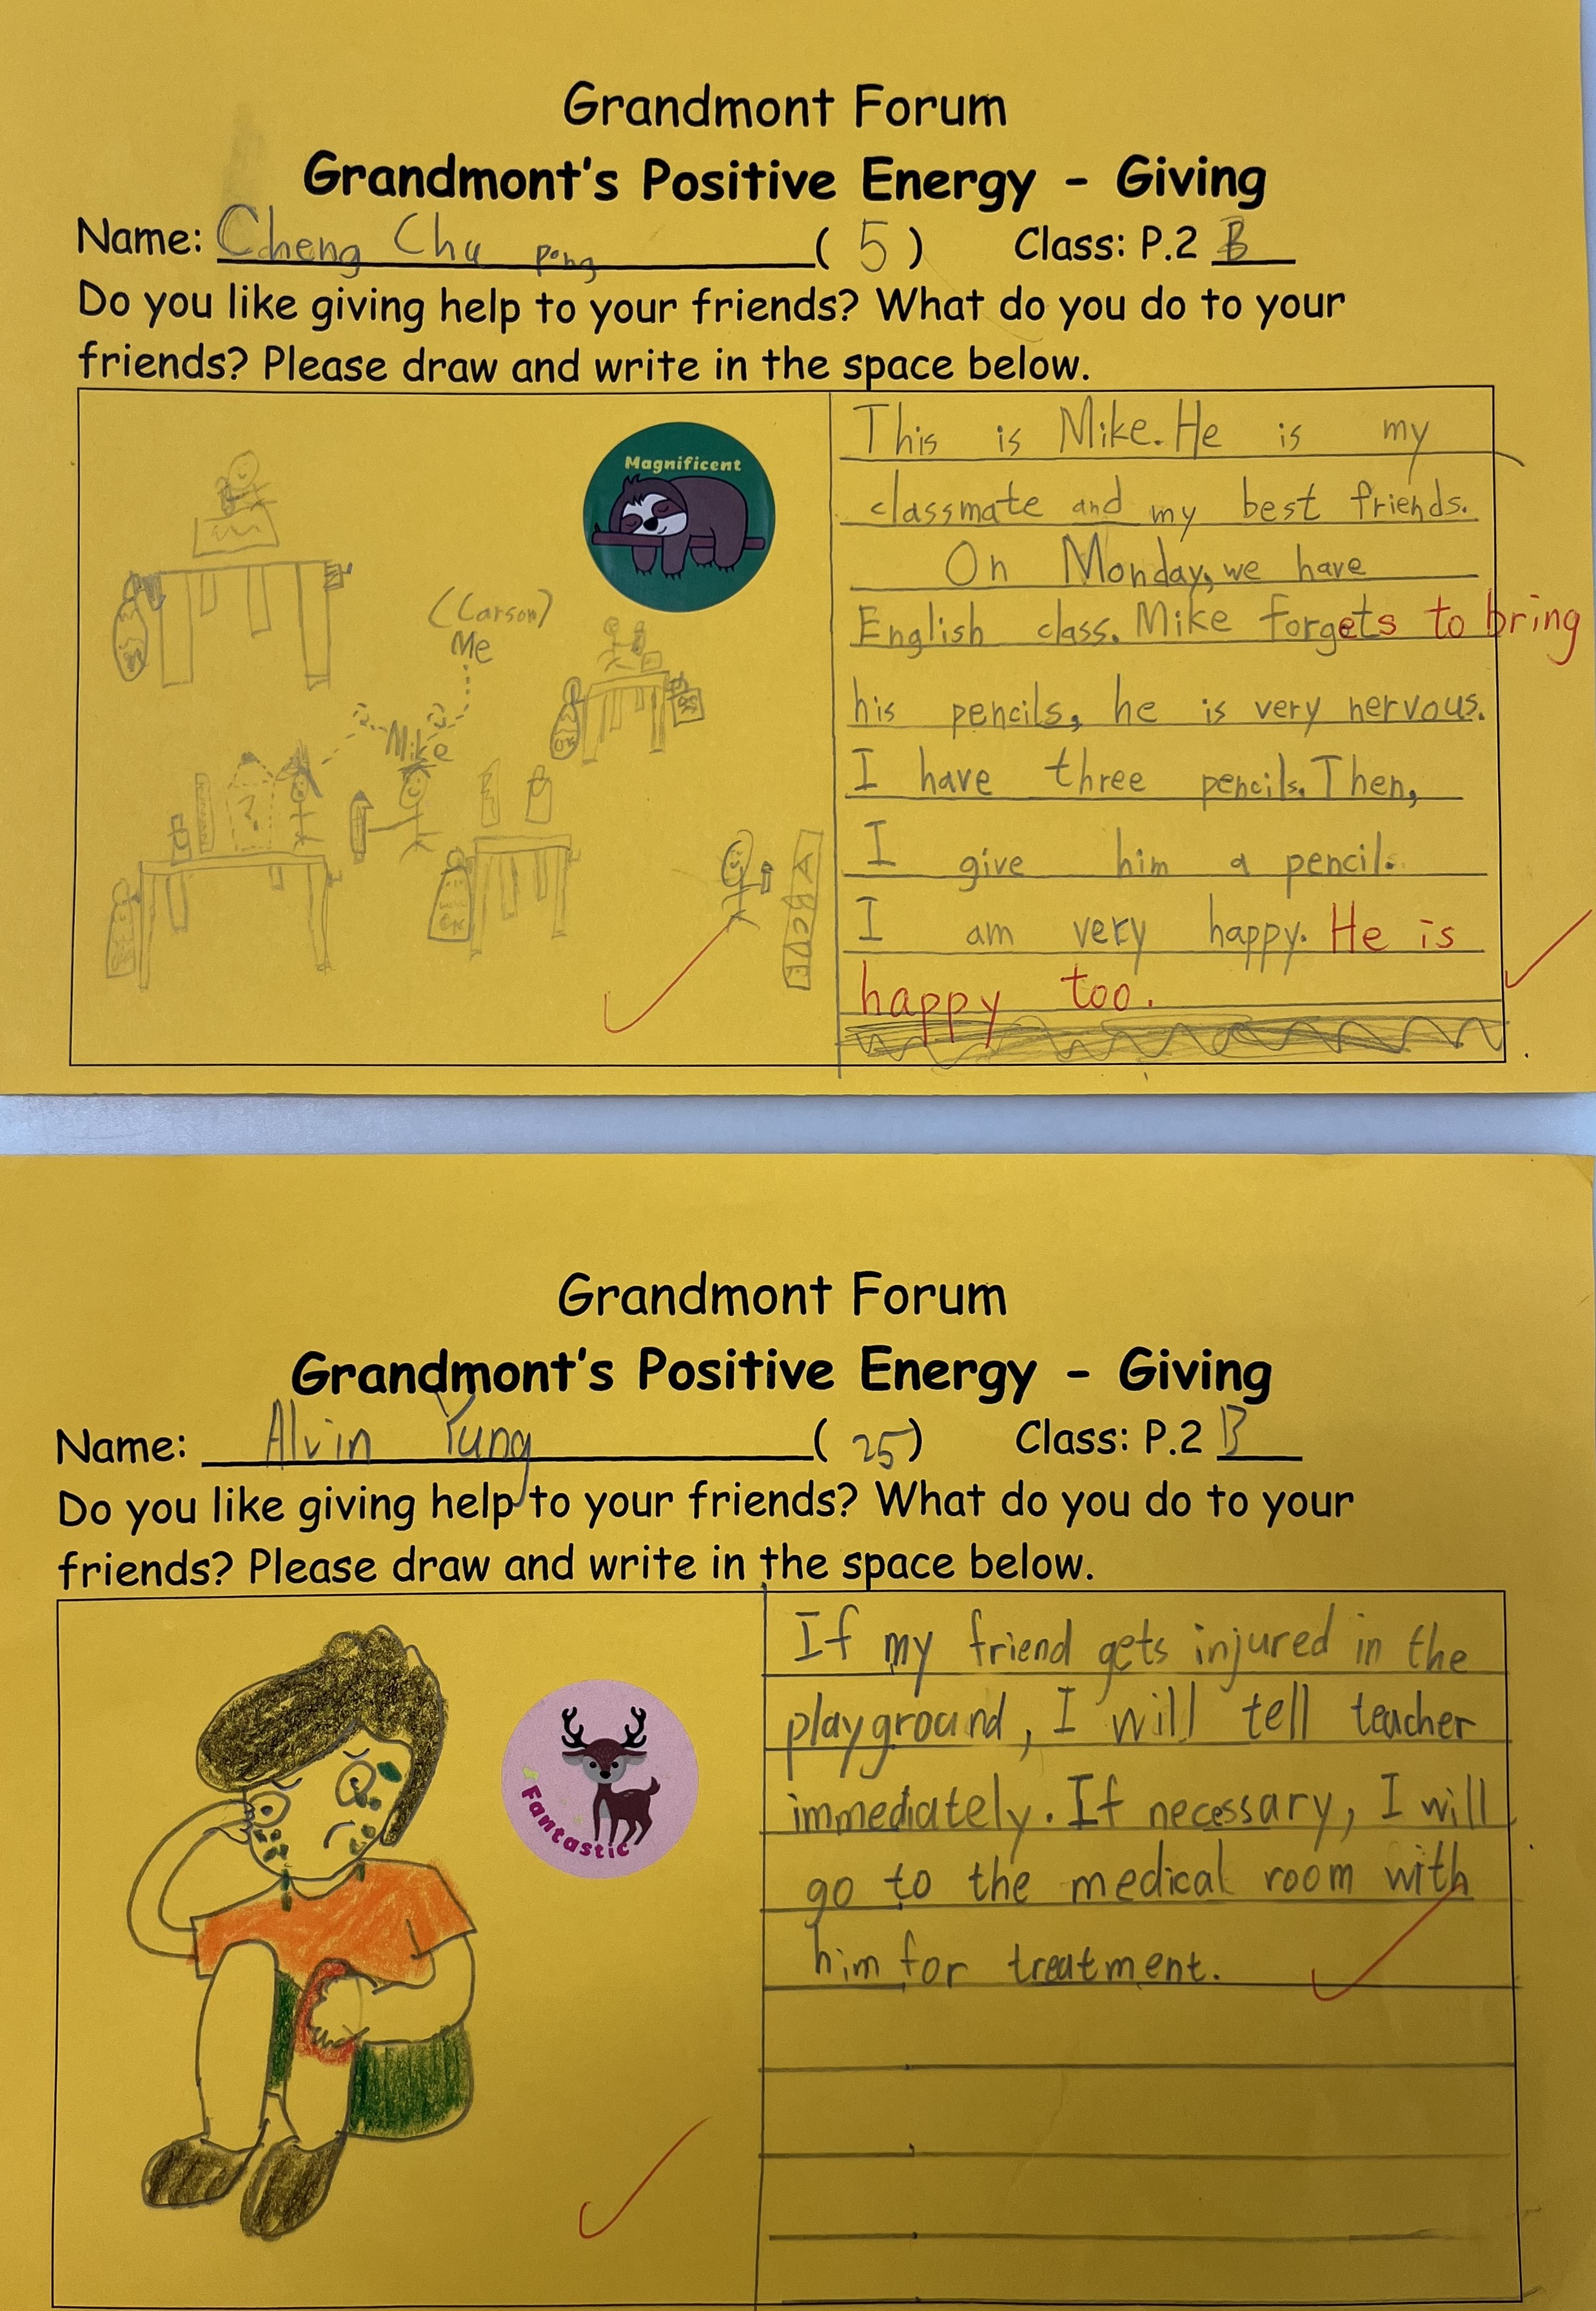 Grandmont Forum
Grandmont's Positive Energy - Giving
Name: Cheng Chu Pong ( 5 ) Class: P.2 B
Do you like giving help to your friends? What do you do to your
friends? Please draw and write in the space below.
Magnificent
(Carson)
Me
Mike
This is Mike. He is my
classmate and my best friends.
On Monday, we have
English class. Mike forgets to bring
his pencils, he is very nervous.
I have three pencils. Then,
I give him a pencil.
I am very happy. He is
happy too.
Grandmont Forum
Grandmont's Positive Energy - Giving
Name: Alvin Yung ( 25 ) Class: P.2 B
Do you like giving help to your friends? What do you do to your
friends? Please draw and write in the space below.
Fantastic
If my friend gets injured in the
playground, I will tell teacher
immediately. If necessary, I will
go to the medical room with
him for treatment.